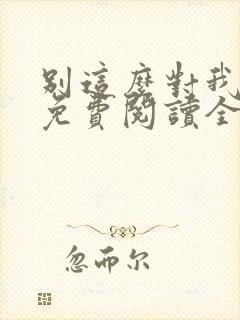 別這麼對我
免費閱讀全
忽而尔